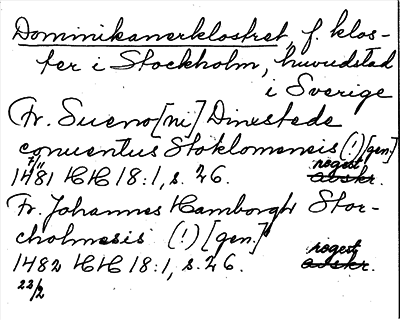 Dominikanerklostret, f. klos-
ter i Stockholm, huvudstad
i Sverige
Fr. Sueno[ni] Dinstede
conuentus Stoklomensis (!) [gen.]
7/11
1481 HH 18:1, s. 26. regest avskr.
Fr. Johannes Hamborgh Stor-
cholmesis (!) [gen.]
1482 HH 18:1, s. 26. regest avskr.
22/2